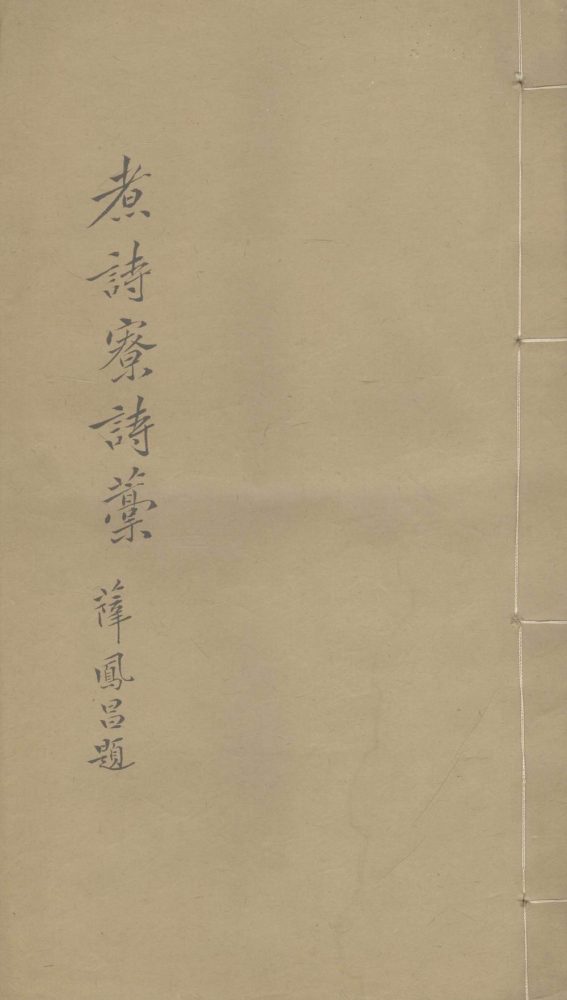 煮詩寮詩藁
薛鳳昌題